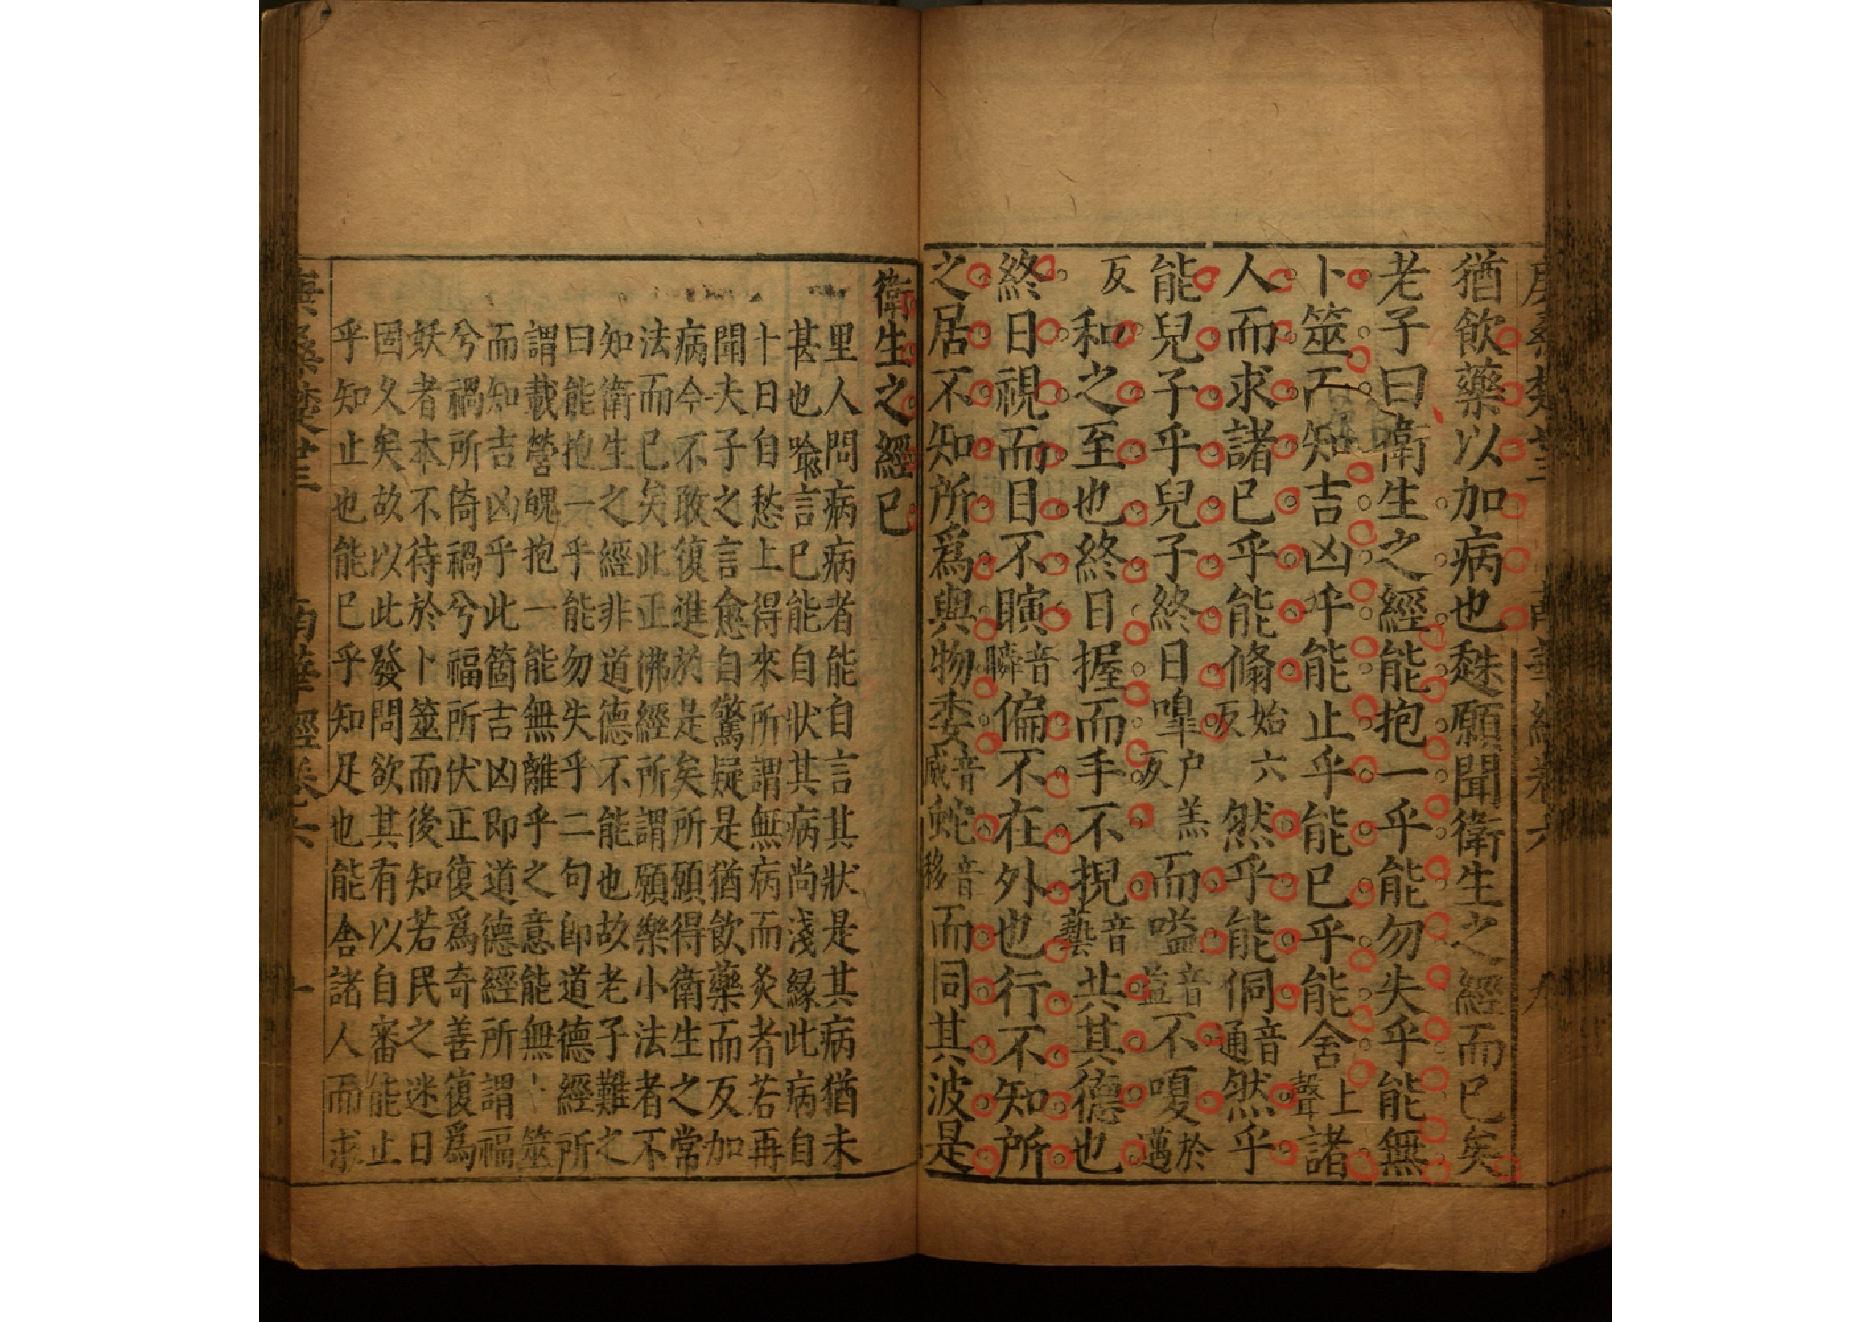 猶飲藥以加病也趎願聞衛生之經而已矣
老子曰衛生之經能抱一乎能勿失乎能無
卜筮而知吉凶乎能止乎能已乎能舍上聲諸
人而求諸已乎能翛始六反然乎能侗音通然乎
能兒子乎兒子終日嘷户羔反而嗌音益不嗄於邁
反和之至也終日握而手不掜音藝共其德也
終日視而目不瞚音瞬偏不在外也行不知所
之居不知所爲與物委音威蛇音移而同其波是
衛生之經已
里人問病病者能自言其狀是其病猶未
甚也喩言已能自狀其病尚淺緣此病自
十日自愁上得來所謂無病而灸者若再
聞夫子之言愈自驚疑是猶飲藥而反加
病今不敢復進於是矣所願得衛生之常
法而已矣此正佛經所謂願樂小法者不
知衛生之經非道德不能也故老子難之
曰能抱一乎能勿失乎二句即道德經所
謂載營魄抱一能無離乎之意能無卜筮
而知吉凶乎此箇吉凶即道德經所謂福
兮禍所倚禍兮福所伏正復爲奇善復爲
妖者本不待於卜筮而後知若民之迷日
固久矣故以此發問欲其有以自審能止
乎知止也能已乎知足也能舍諸人而求
南華經卷六